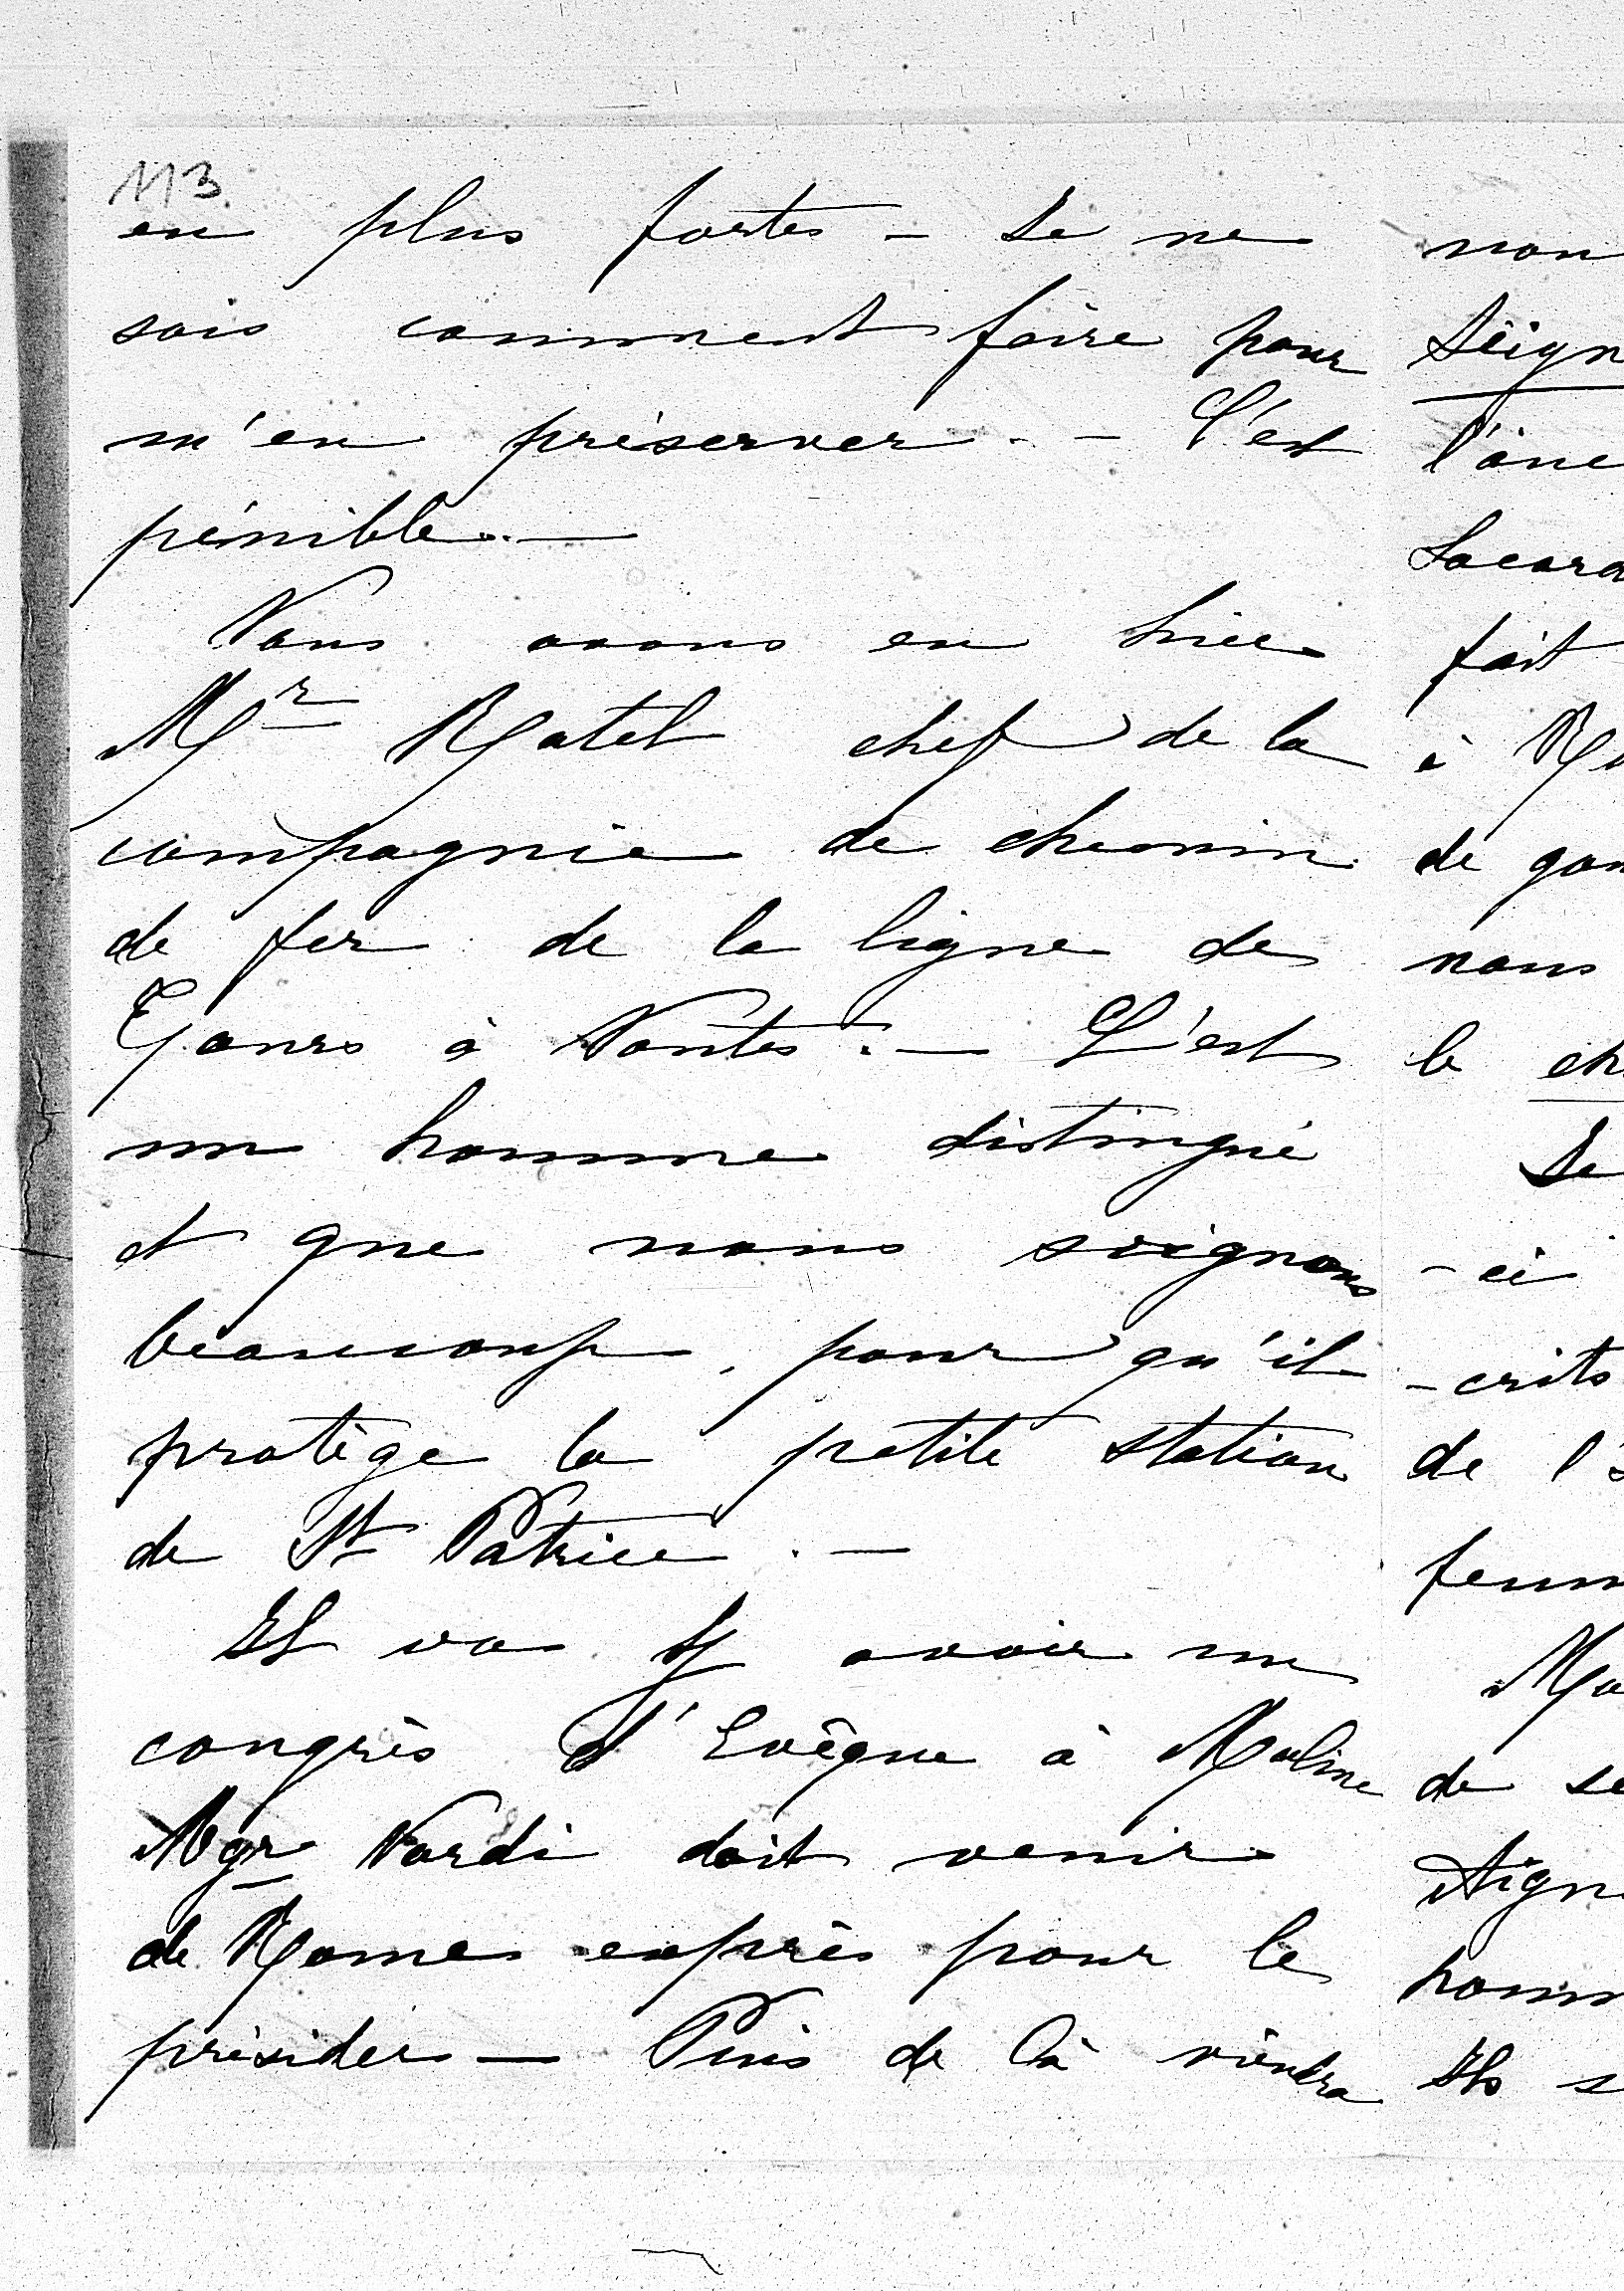 113
en plus fortes – Je ne
sais comment faire pour
m'en préserver. – C'est
pénible. –
Nous avons eu hier
Mr Ratel chef de la
compagnie de chemin
de fer de la ligne de
Tours à Nantes. – C'est
un homme distingué
et que nous soignons
beaucoup, pour qu'il
protège la petite station
de St Patrice. –
Il va y avoir un
congrès d'Evêque à Maline
Mgr Nardi doit venir
de Rome exprès pour le
présider – Puis de là viendra
non
Seign
l'anc
Lacord
fait
à Ro
de gou
nous
le ch
Je
-ci
-crits
de l's
femm
Ma
de se
Aign
homm
Ils s